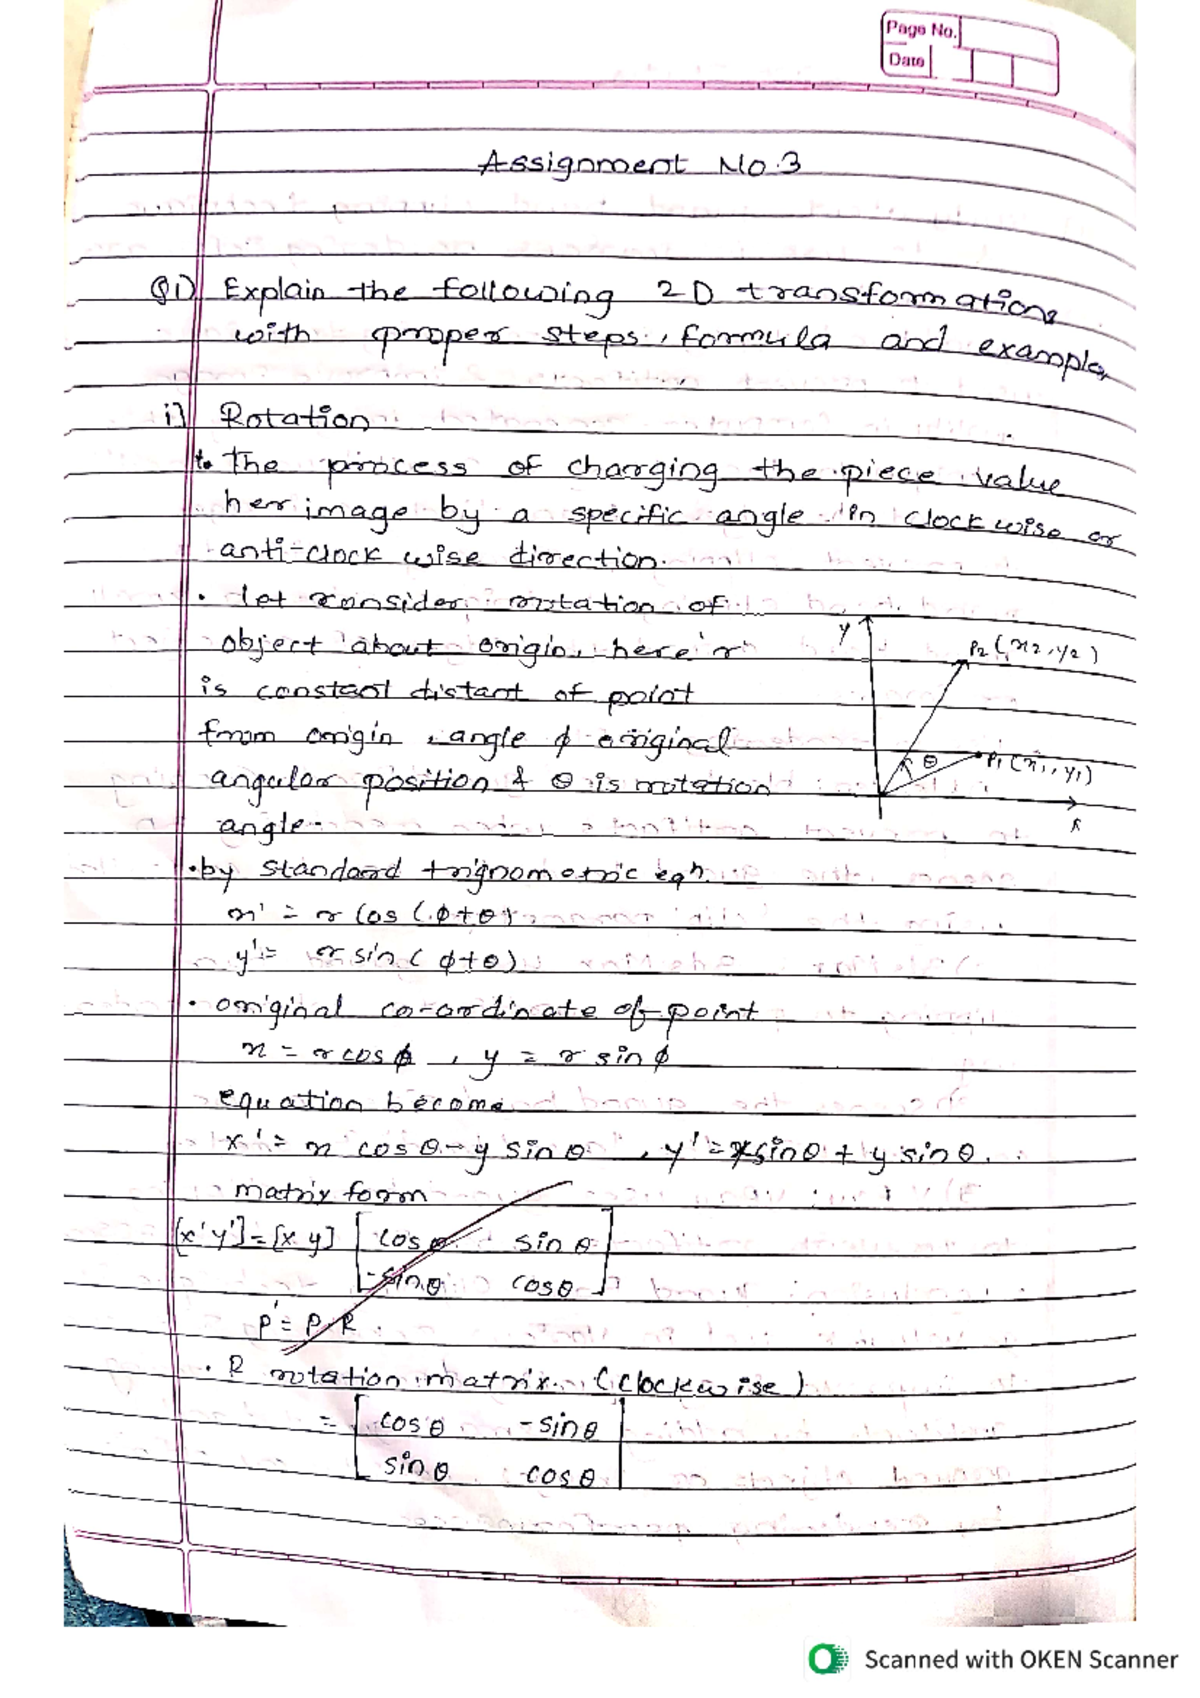 Page No.
Date
Assignment No.3
Q1) Explain the following 2D transformations
with proper steps, formula and example,
i] Rotation
to The process of changing the piece value
her image by a specific angle in clock wise or
anti-clock wise direction.
• let consider rotation of
object about origin, here 'r'
is constant distant of point
from origin, angle ϕ original
angular position & θ is rotation
angle.
y
P2 (x2, y2)
θ
P1 (x1, y1)
x
• by standard trignometric eqn.
x' = r cos (ϕ+θ)
y' = r sin (ϕ+θ)
• original co-ordinate of point
x = r cos ϕ , y = r sin ϕ
equation become
x' = x cos θ - y sin θ , y' = x sin θ + y sin θ.
matrix form
[x' y'] = [x y] [cos θ sin θ
-sin θ cos θ]
P' = P.R
• R rotation matrix. (clockwise)
= [cos θ -sin θ
sin θ cos θ]
Scanned with OKEN Scanner